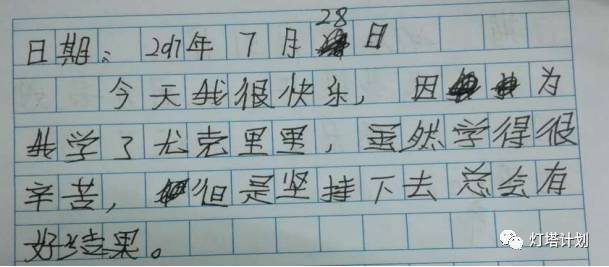 日期：2017年7月28日
今天我很快乐，因为
我学了尤克里里，虽然学得很
辛苦，但是坚持下去总会有
好结果。
灯塔计划